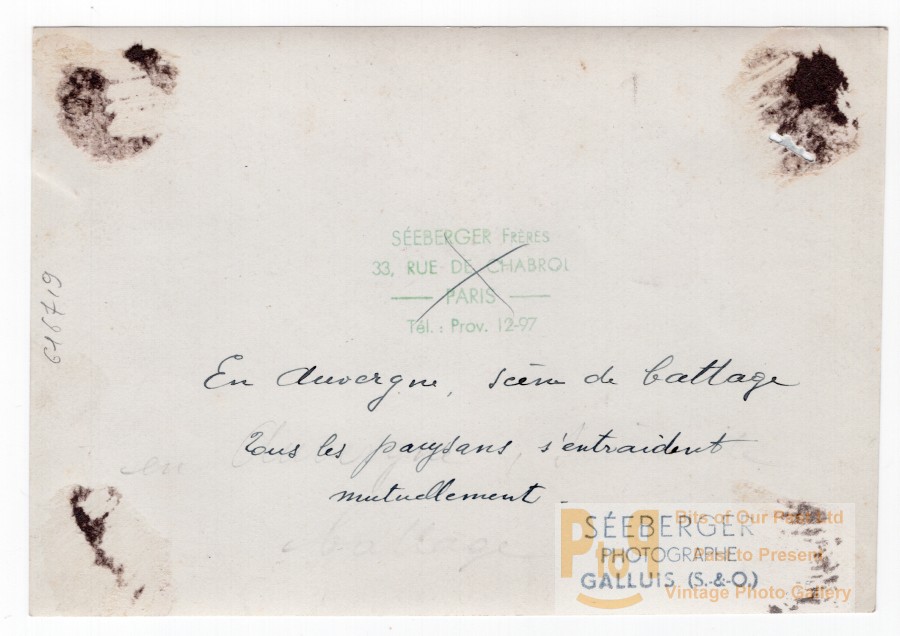 SÉEBERGER FRÈRES
33, RUE DE CHABROL
PARIS
Tél. : Prov. 12-97
616719
En Auvergne, scène de battage
Tous les paysans, s'entraident
mutuellement.
en
battage
SÉEBERGER
PHOTOGRAPHE
GALLUIS (S.-&-O.)
PtoP
Bits of Our Past Ltd
Past to Present
Vintage Photo Gallery